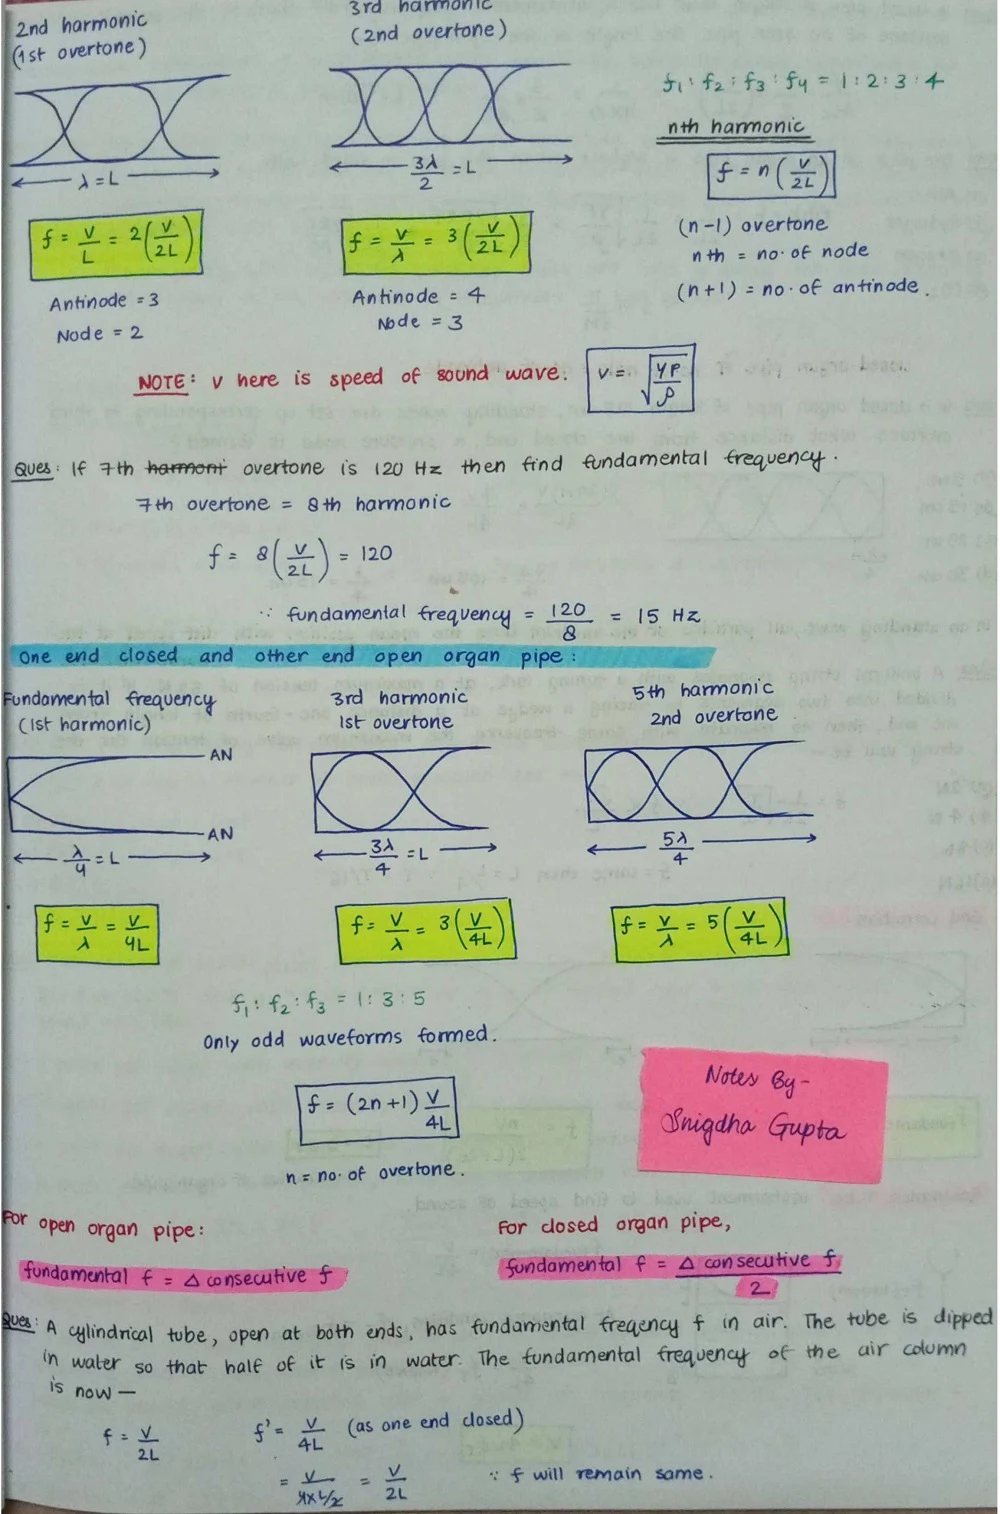 2nd harmonic
(1st overtone)
λ = L
f = V/L = 2(V/2L)
Antinode = 3
Node = 2
3rd harmonic
(2nd overtone)
3λ/2 = L
f = V/λ = 3(V/2L)
Antinode = 4
Node = 3
f₁ : f₂ : f₃ : f₄ = 1 : 2 : 3 : 4
nth harmonic
f = n(V/2L)
(n-1) overtone
nth = no. of node
(n+1) = no. of antinode.
NOTE: v here is speed of sound wave. v = √(γP/ρ)
Ques: If 7th harmoni overtone is 120 Hz then find fundamental frequency.
7th overtone = 8th harmonic
f = 8(V/2L) = 120
∵ fundamental frequency = 120/8 = 15 Hz
One end closed and other end open organ pipe:
Fundamental frequency
(1st harmonic)
AN
AN
λ/4 = L
f = V/λ = V/4L
3rd harmonic
1st overtone
3λ/4 = L
f = V/λ = 3(V/4L)
5th harmonic
2nd overtone
5λ/4
f = V/λ = 5(V/4L)
f₁ : f₂ : f₃ = 1 : 3 : 5
Only odd waveforms formed.
f = (2n+1) V/4L
n = no. of overtone.
Notes By-
Snigdha Gupta
For open organ pipe:
fundamental f = Δ consecutive f
For closed organ pipe,
fundamental f = Δ consecutive f/2
Ques: A cylindrical tube, open at both ends, has fundamental freqency f in air. The tube is dipped
in water so that half of it is in water. The fundamental frequency of the air column
is now —
f = V/2L
f' = V/4L (as one end closed)
= V/4×L/2 = V/2L ∵ f will remain same.